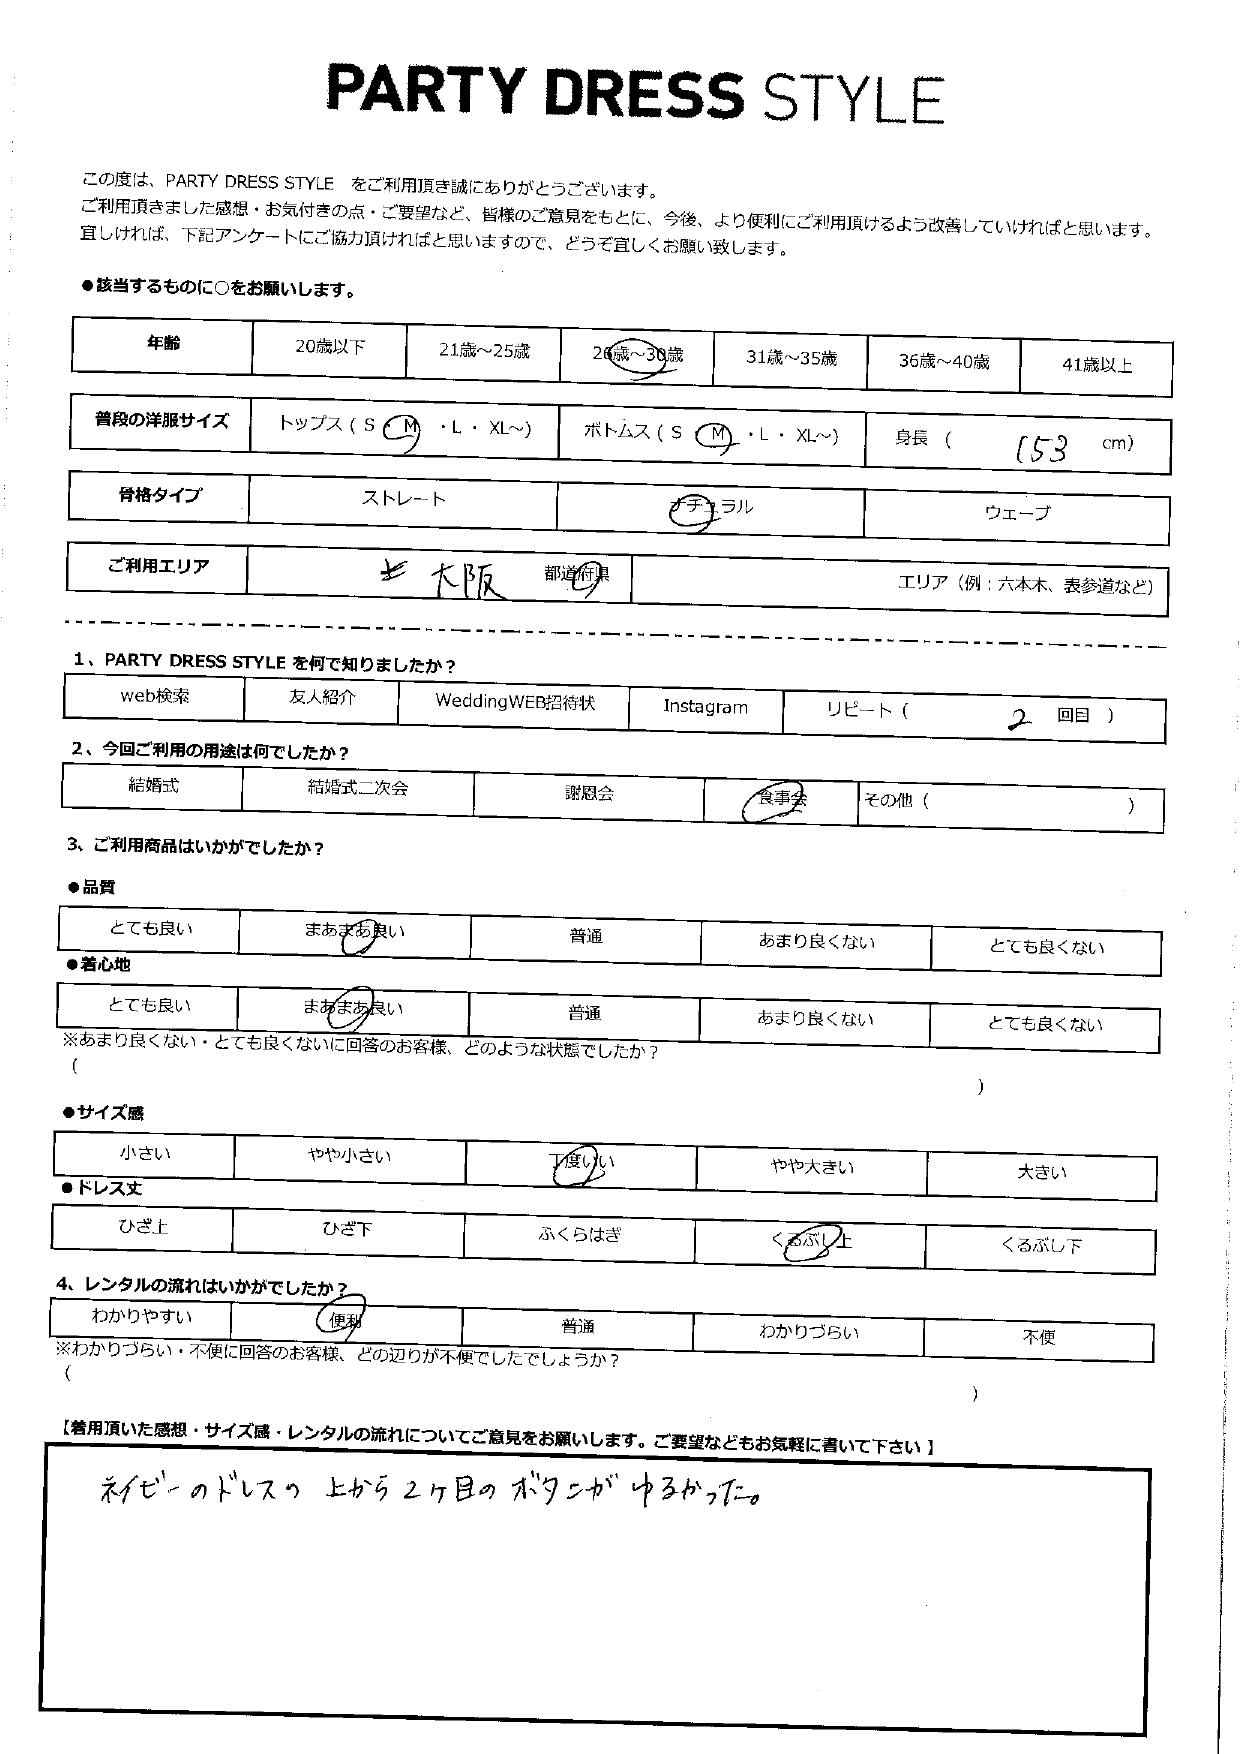 PARTY DRESS STYLE
この度は、PARTY DRESS STYLE をご利用頂き誠にありがとうございます。
ご利用頂きました感想・お気付きの点・ご要望など、皆様のご意見をもとに、今後、より便利にご利用頂けるよう改善していければと思います。
宜しければ、下記アンケートにご協力頂ければと思いますので、どうぞ宜しくお願い致します。
●該当するものに○をお願いします。
年齢 20歳以下 21歳～25歳 26歳～30歳 31歳～35歳 36歳～40歳 41歳以上
普段の洋服サイズ トップス ( S ・ M ・L ・ XL～) ボトムス ( S ・ M ・L ・ XL～) 身長 ( 153 cm)
骨格タイプ ストレート ナチュラル ウェーブ
ご利用エリア 大阪 都道府県 エリア（例：六本木、表参道など）
1、PARTY DRESS STYLE を何で知りましたか？
web検索 友人紹介 WeddingWEB招待状 Instagram リピート ( 2 回目 )
2、今回ご利用の用途は何でしたか？
結婚式 結婚式二次会 謝恩会 食事会 その他 ( )
3、ご利用商品はいかがでしたか？
●品質
とても良い まあまあ良い 普通 あまり良くない とても良くない
●着心地
とても良い まあまあ良い 普通 あまり良くない とても良くない
※あまり良くない・とても良くないに回答のお客様、どのような状態でしたか？
( )
●サイズ感
小さい やや小さい 丁度いい やや大きい 大きい
●ドレス丈
ひざ上 ひざ下 ふくらはぎ くるぶし上 くるぶし下
4、レンタルの流れはいかがでしたか？
わかりやすい 便利 普通 わかりづらい 不便
※わかりづらい・不便に回答のお客様、どの辺りが不便でしたでしょうか？
( )
【着用頂いた感想・サイズ感・レンタルの流れについてご意見をお願いします。ご要望などもお気軽に書いて下さい】
ネイビーのドレスの 上から2ヶ目のボタンが ゆるかった。